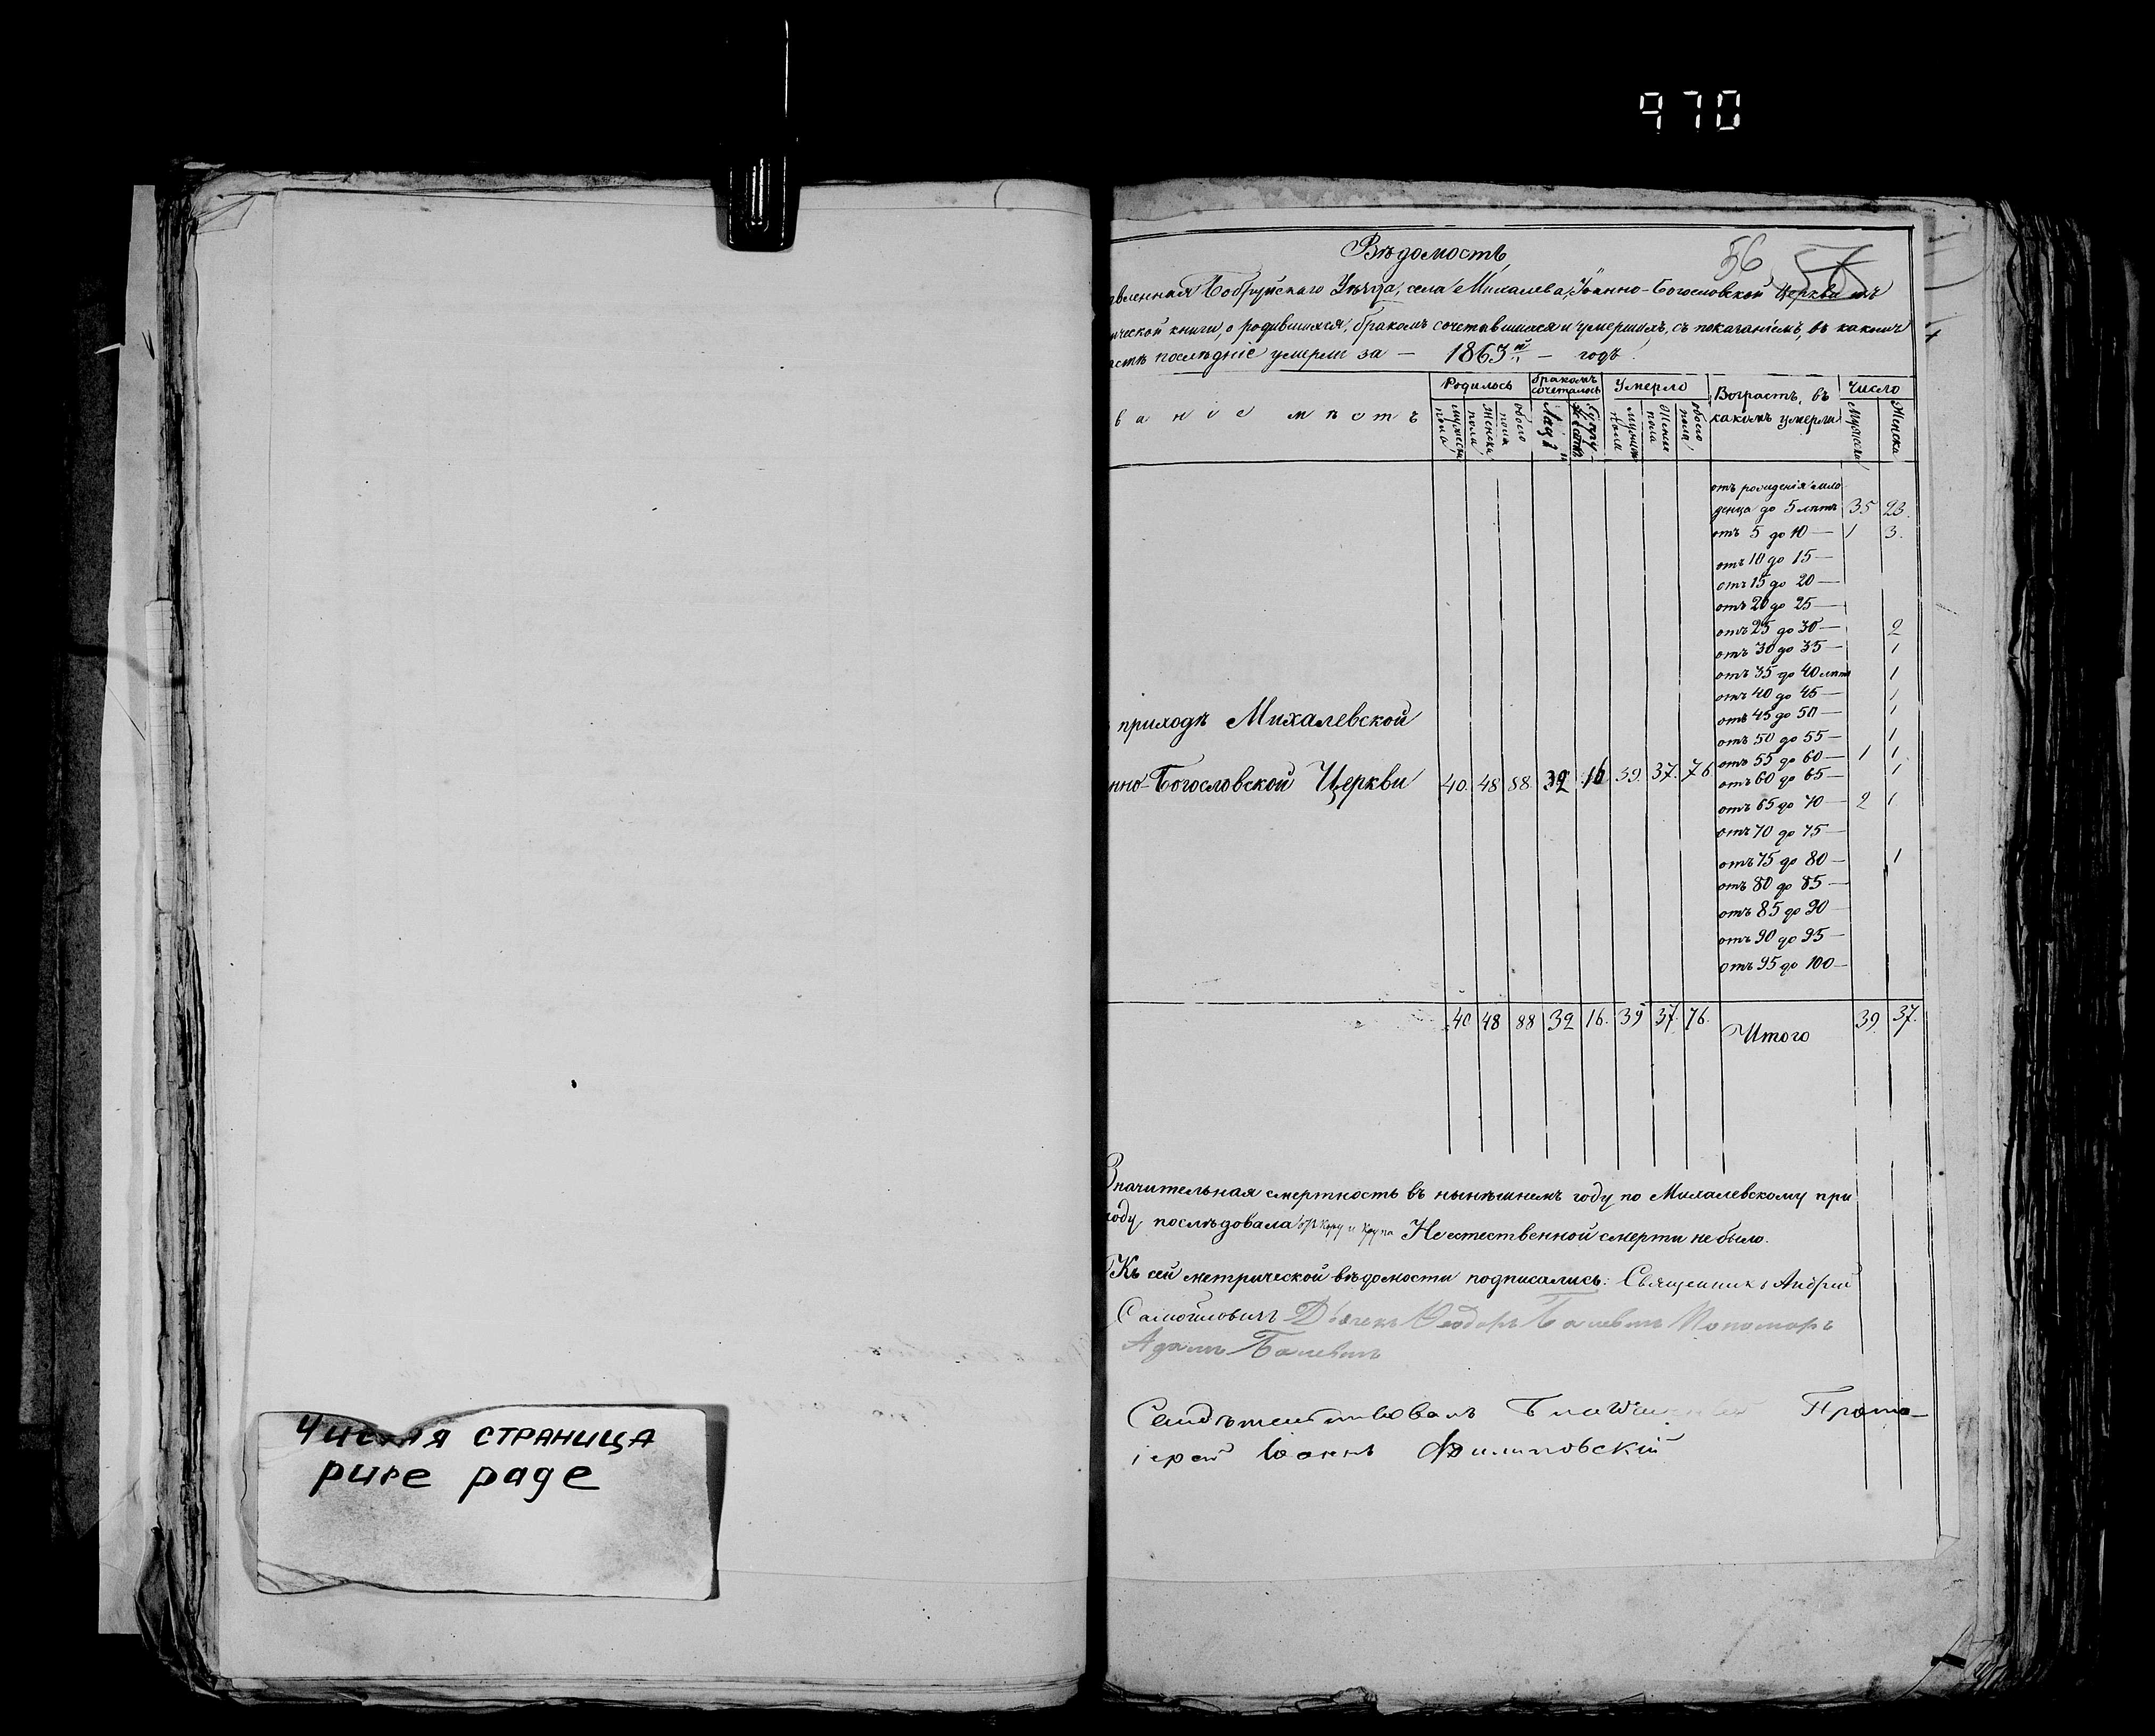 970
Чистая страница
pure page
Вѣдомость
56
вленная Бобруйскаго Уѣзда, села Михалева, Іоанно-Богословской Церкви изъ
ической книги, о родившихся, бракомъ сочетавшихся и умершихъ, съ показаніемъ, въ какомъ
астѣ послѣдніе умерли за — 1863й — годъ.
Родилось бракомъ сочеталось Умерло Возрастъ, въ какомъ умерли Число
ваніе мѣстъ
мужеска пола Женска пола обоего пола Лицъ Супружествъ мужеска пола Женска пола обоего пола Мужска Женска
отъ рожденія мла
денца до 5 лѣтъ 35 23.
отъ 5 до 10 — 1 3.
отъ 10 до 15 —
отъ 15 до 20 —
отъ 20 до 25 —
отъ 25 до 30 — 2
отъ 30 до 35 — 1
отъ 35 до 40 лѣтъ 1
отъ 40 до 45 — 1
отъ 45 до 50 — 1
отъ 50 до 55 — 1
отъ 55 до 60 — 1 1
отъ 60 до 65 — 1
отъ 65 до 70 — 2 1
отъ 70 до 75 —
отъ 75 до 80 — 1
отъ 80 до 85 —
отъ 85 до 90 —
отъ 90 до 95 —
отъ 95 до 100 —
приходѣ Михалевской
нно-Богословской Церкви 40. 48 88 32 16 39. 37. 76
40 48 88 32 16. 39 37. 76. Итого 39. 37.
Значительная смертность въ нынѣшнемъ году по Михалевскому при
ходу, послѣдовала отъ Кору и Крупа Неестественной смерти не было.
Къ сей метрической вѣдомости подписались: Священникъ Андрей
Самойловичъ Дьячекъ Ѳеодоръ Балевичъ Пономарь
Адамъ Балевичъ
Свидѣтельствовалъ Благочинный Прото-
іерей Іоаннъ Филиповскій